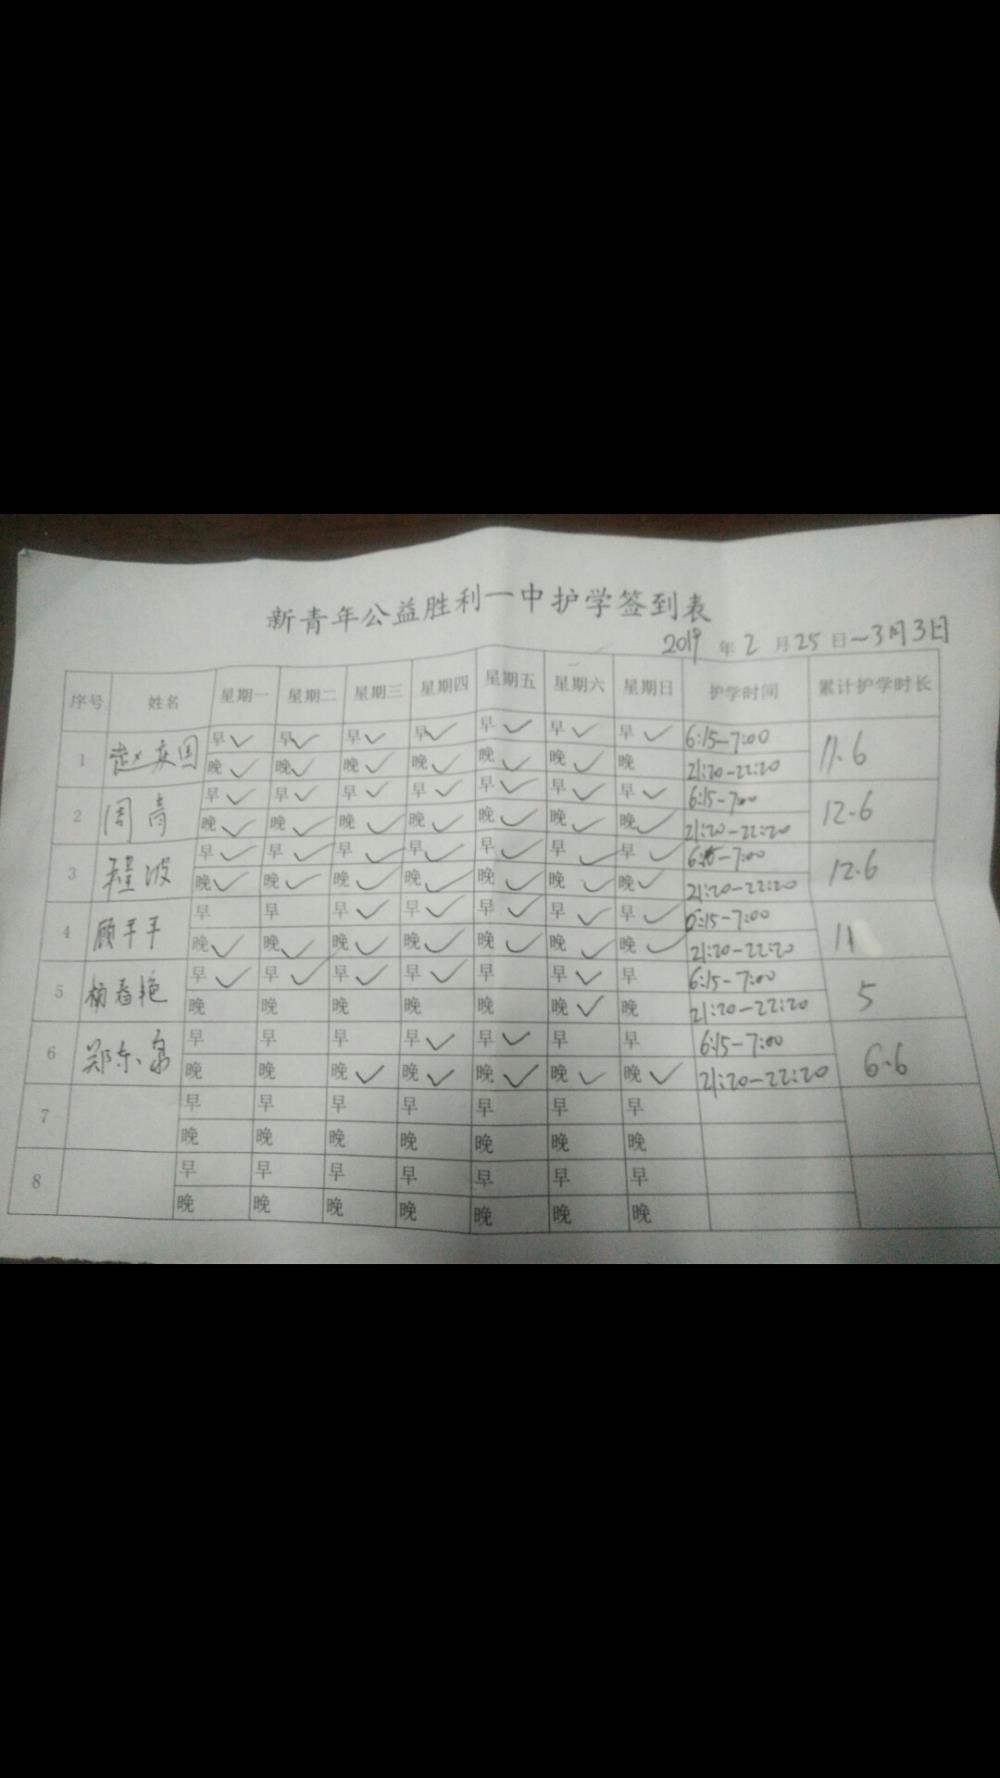 新青年公益胜利一中护学签到表
2019 年 2 月 25 日~3月3日
序号 姓名 星期一 星期二 星期三 星期四 星期五 星期六 星期日 护学时间 累计护学时长
1 赵庆国 早✓ 早✓ 早✓ 早✓ 早✓ 早✓ 早✓ 6:15-7:00 11.6
晚✓ 晚✓ 晚✓ 晚✓ 晚✓ 晚✓ 晚 21:20-22:20
2 周青 早✓ 早✓ 早✓ 早✓ 早✓ 早✓ 早✓ 6:15-7:00 12.6
晚✓ 晚✓ 晚✓ 晚✓ 晚✓ 晚✓ 晚✓ 21:20-22:20
3 程波 早✓ 早✓ 早✓ 早✓ 早✓ 早✓ 早✓ 6:15-7:00 12.6
晚✓ 晚✓ 晚✓ 晚✓ 晚✓ 晚✓ 晚✓ 21:20-22:20
4 顾 早 早 早✓ 早✓ 早✓ 早✓ 早✓ 6:15-7:00 11
晚✓ 晚✓ 晚✓ 晚✓ 晚✓ 晚✓ 晚✓ 21:20-22:20
5 杨春艳 早✓ 早✓ 早✓ 早✓ 早 早✓ 早 6:15-7:00 5
晚 晚 晚 晚 晚 晚✓ 晚 21:20-22:20
6 郑东 早 早 早 早✓ 早✓ 早 早 6:15-7:00 6.6
晚 晚 晚✓ 晚✓ 晚✓ 晚✓ 晚✓ 21:20-22:20
7 早 早 早 早 早 早 早
晚 晚 晚 晚 晚 晚 晚
8 早 早 早 早 早 早 早
晚 晚 晚 晚 晚 晚 晚